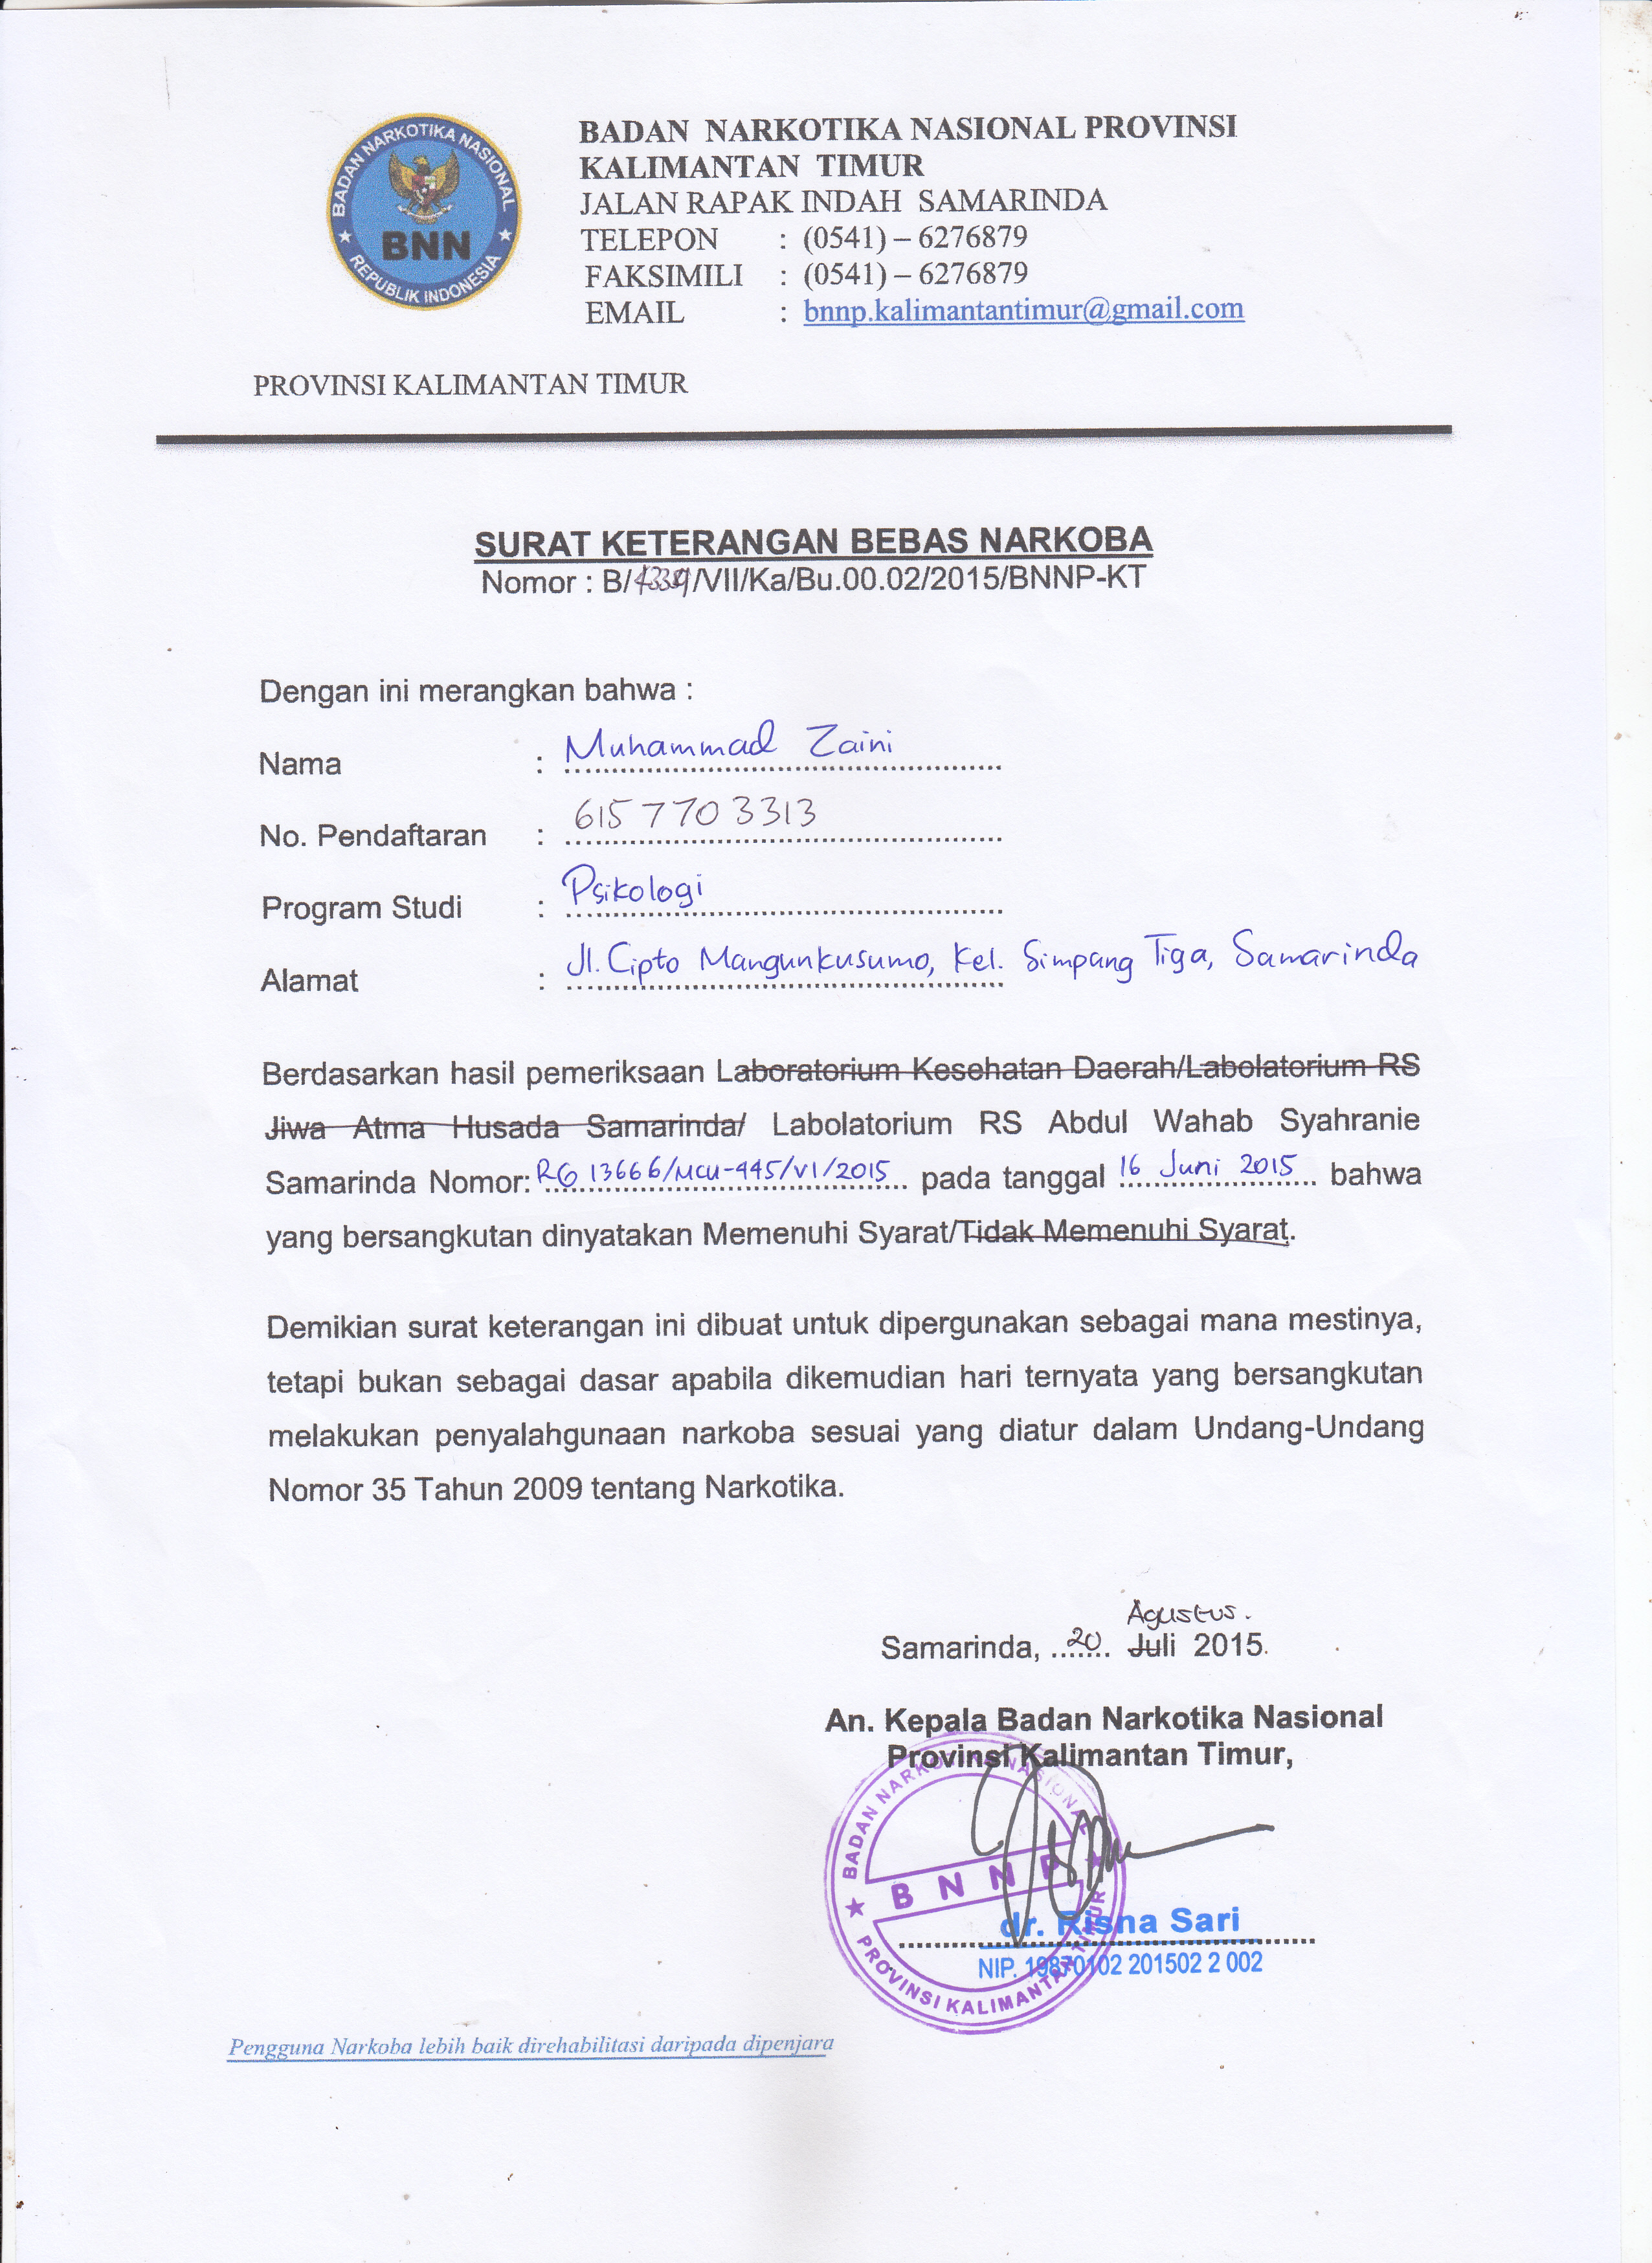 BADAN NARKOTIKA NASIONAL
BNN
REPUBLIK INDONESIA
BADAN NARKOTIKA NASIONAL PROVINSI
KALIMANTAN TIMUR
JALAN RAPAK INDAH SAMARINDA
TELEPON : (0541) – 6276879
FAKSIMILI : (0541) – 6276879
EMAIL : bnnp.kalimantantimur@gmail.com
PROVINSI KALIMANTAN TIMUR
SURAT KETERANGAN BEBAS NARKOBA
Nomor : B/ /VII/Ka/Bu.00.02/2015/BNNP-KT
Dengan ini merangkan bahwa :
Nama : Muhammad Zaini
No. Pendaftaran : 6157703313
Program Studi : Psikologi
Alamat : Jl. Cipto Mangunkusumo, Kel. Simpang Tiga, Samarinda
Berdasarkan hasil pemeriksaan Laboratorium Kesehatan Daerah/Labolatorium RS
Jiwa Atma Husada Samarinda/ Labolatorium RS Abdul Wahab Syahranie
Samarinda Nomor: RG 13666/MCU-445/VI/2015 pada tanggal 16 Juni 2015 bahwa
yang bersangkutan dinyatakan Memenuhi Syarat/Tidak Memenuhi Syarat.
Demikian surat keterangan ini dibuat untuk dipergunakan sebagai mana mestinya,
tetapi bukan sebagai dasar apabila dikemudian hari ternyata yang bersangkutan
melakukan penyalahgunaan narkoba sesuai yang diatur dalam Undang-Undang
Nomor 35 Tahun 2009 tentang Narkotika.
Agustus.
Samarinda, 20 Juli 2015.
An. Kepala Badan Narkotika Nasional
Provinsi Kalimantan Timur,
BADAN NARKOTIKA NASIONAL
BNNP
PROVINSI KALIMANTAN TIMUR
dr. Risna Sari
NIP. 19870102 201502 2 002
Pengguna Narkoba lebih baik direhabilitasi daripada dipenjara